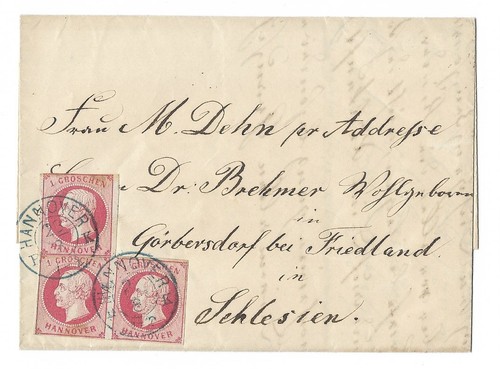 Frau M. Dehn pr Addresse
Dr: Brehmer Wohlgeboren
in
Görbersdorf bei Friedland.
in
Schlesien.
1 GROSCHEN
HANNOVER
HANNOVER
1 GROSCHEN
HANNOVER
GROSCHEN
HANNOVER
HANNOVER